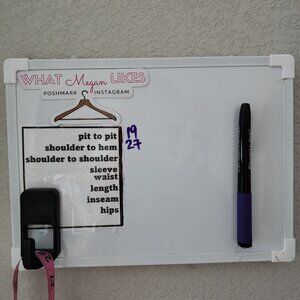 WHAT Megan LIKES
POSHMARK INSTAGRAM
pit to pit 19
shoulder to hem 27
shoulder to shoulder
sleeve
waist
length
inseam
hips